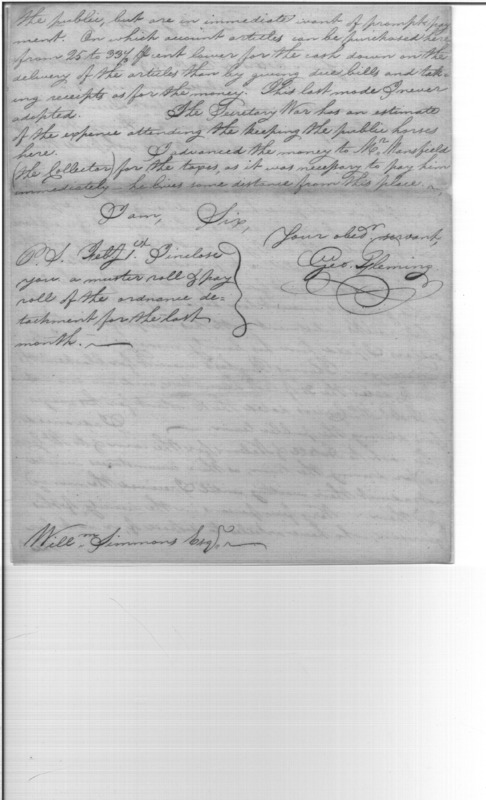 the public, but are in immediate want of prompt pay
ment. On which account articles can be purchased here
from 25 to 33⅓ P cent lower for the cash down on the
delivery of the articles than by giving due bills and tak-
ing receipts as for the money. This last mode I never
adopted. The Secretary War has an estimate
of the expence attending the keeping the public horses
here. I advanced the money to Mr. Mansfield
(the Collector) for the taxes, as it was necessary to pay him
immediately - he lives some distance from this place.
I am, Sir,
Your obedt. servant,
Geo. Fleming
P.S. Feby 1st. I inclose
you a muster roll & pay
roll of the ordnance de-
tachment for the last
month.
Willm Simmons Esqr